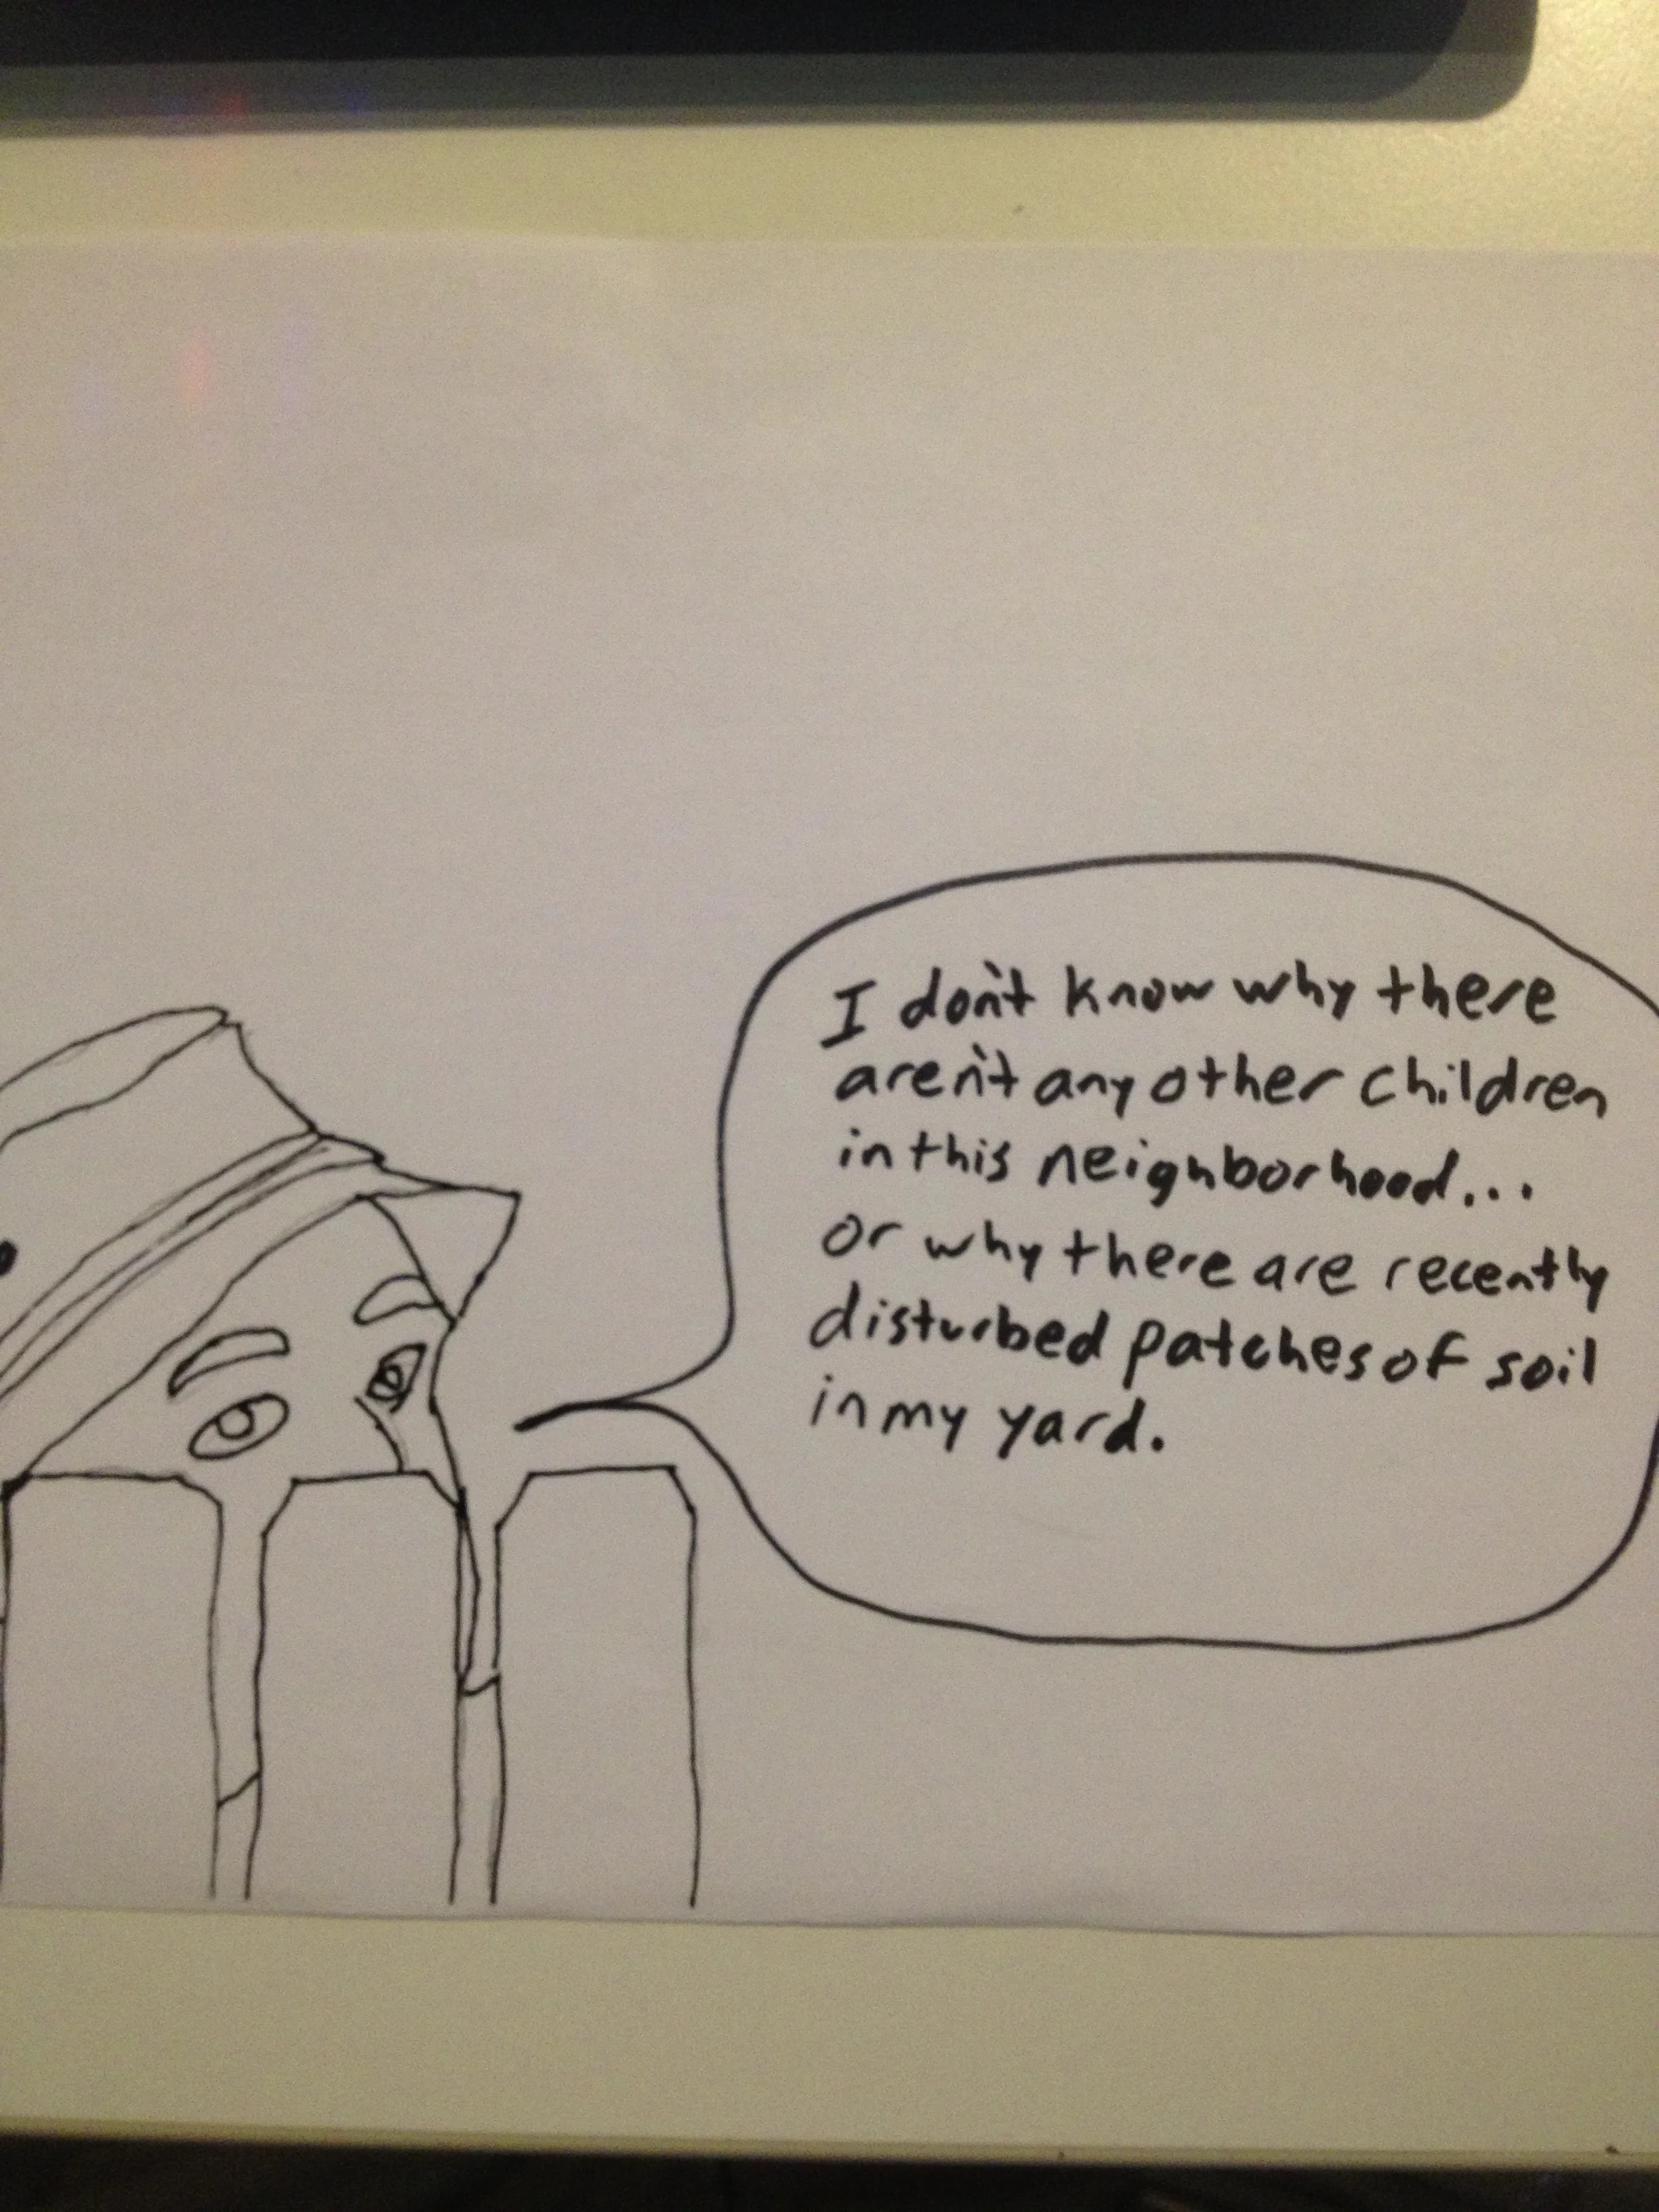 I don't know why there
aren't any other children
in this neighborhood...
or why there are recently
disturbed patches of soil
in my yard.